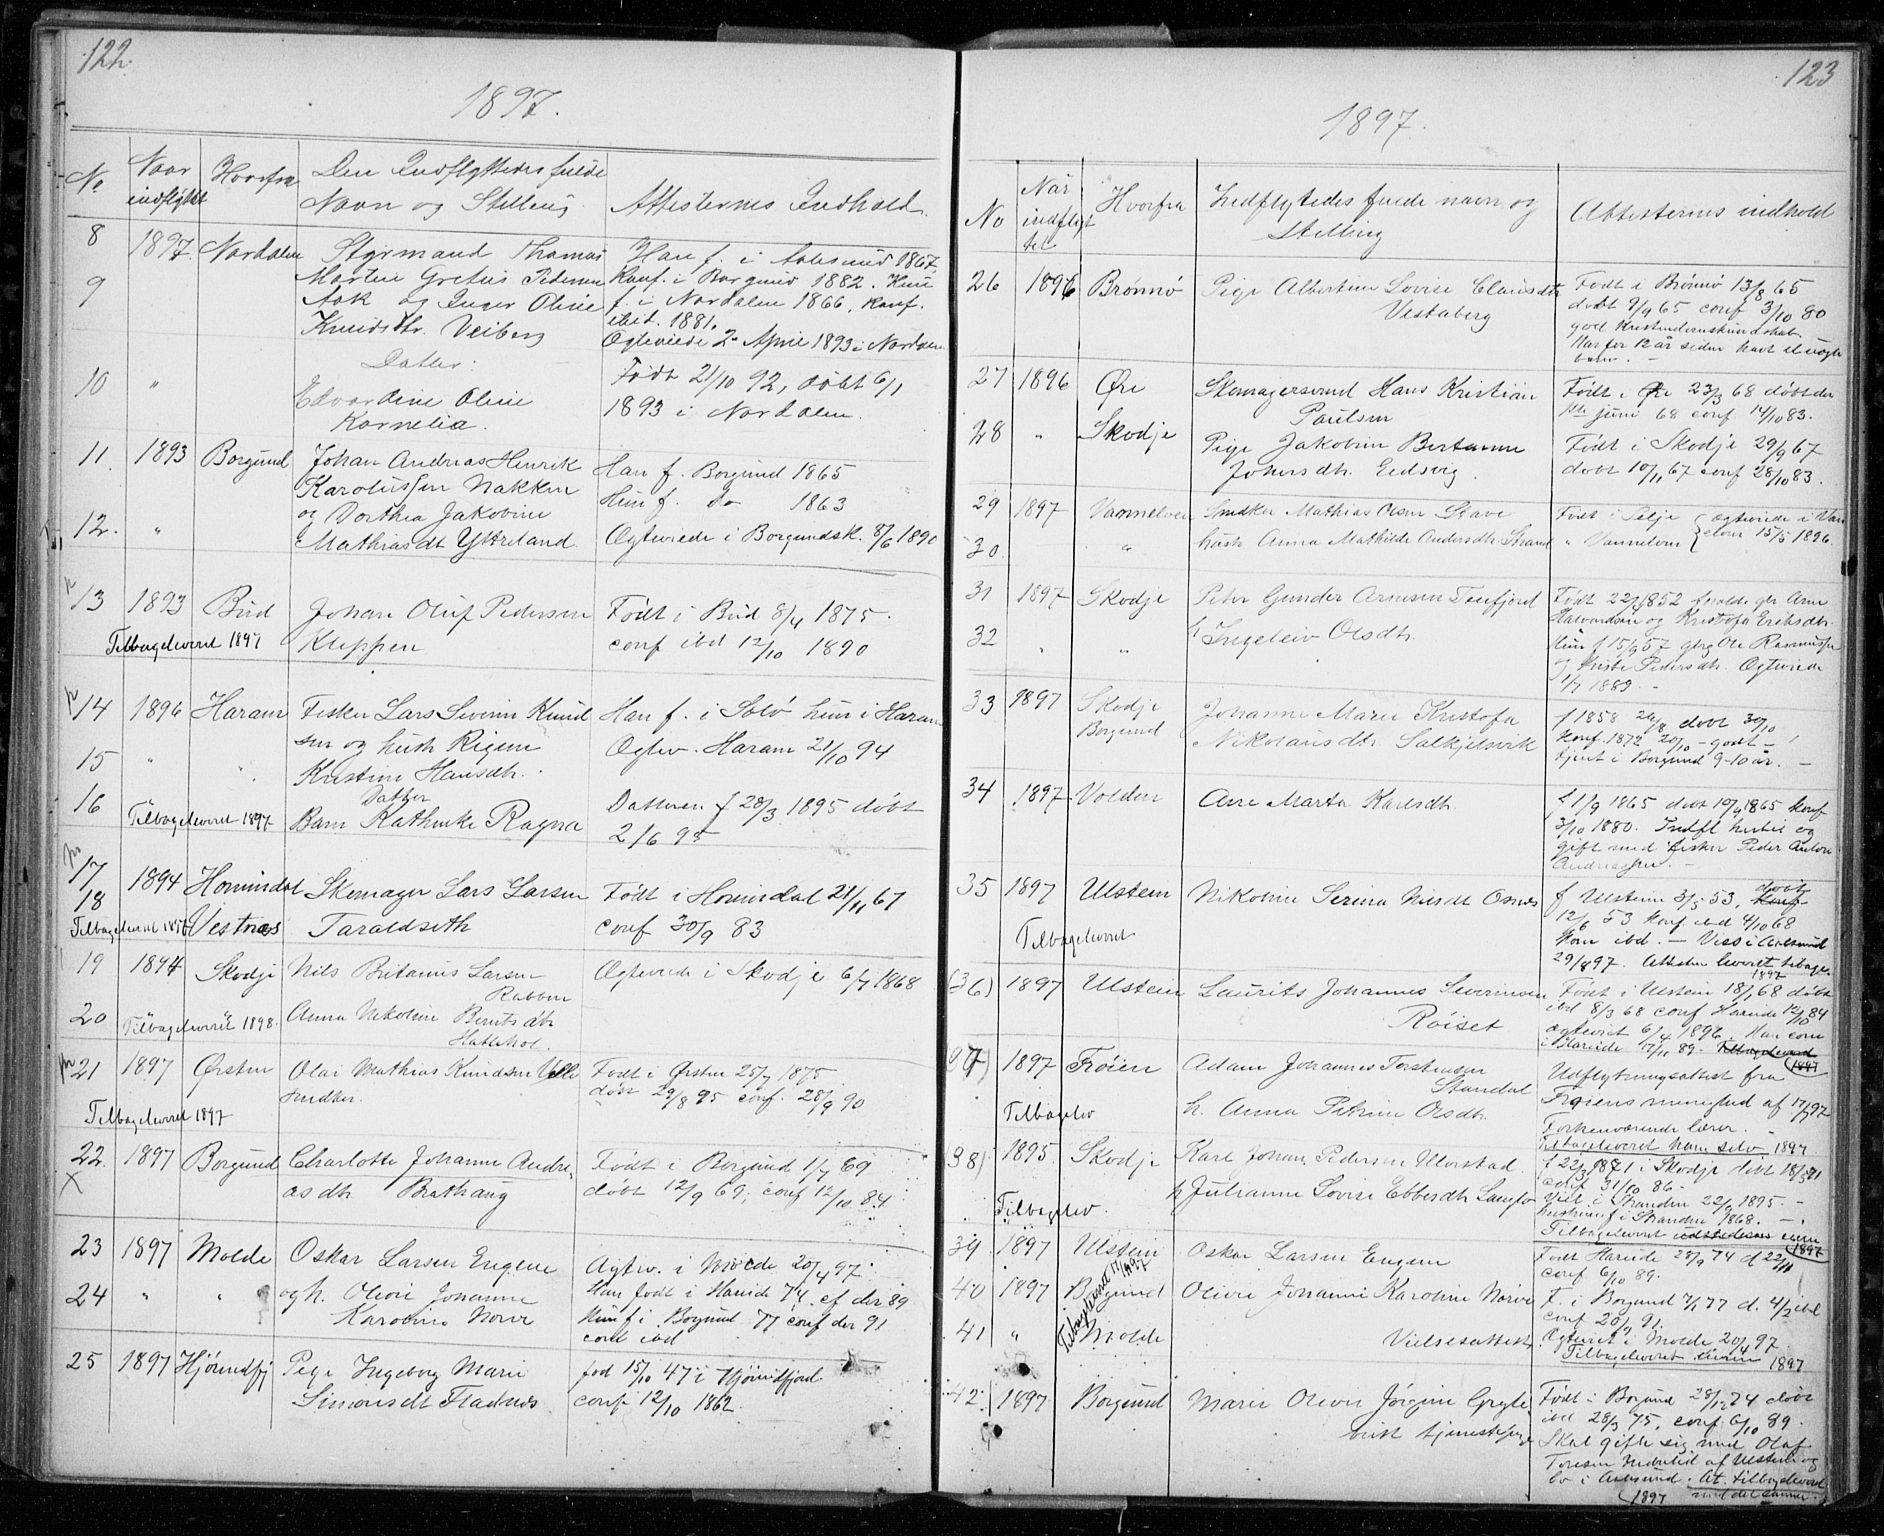 122.
1897.
No
Naar indflyttet
Hvorfra
Den Indflyttedes fulde Navn og Stilling
Attesternes Indhold.
8
1897. Nordalen Styrmand Thomas
Han f. i Aalesund 1867,
9
Martin Gretus Pedersen
Konf. i Borgund 1882. Hun
Aok og Inger Oline
f. i Nordalen 1866, konf.
Knudsdtr. Veiberg
ibid. 1881.
Ogteviede 2 April 1893 i Nordalen
Datter:
10
"
Edvardine Oline
Født 21/10 92, døbt 6/1
Kornelia.
1893 i Nordalen.
11. 1893 Borgund Johan Andreas Henrik
Karolussen Nakken
Han f. Borgund 1865
Hun f. do 1863
12. "
og Dorthea Jakobine
Mathiasdt Ytreland.
Ogteviede i Borgundsk. 8/6 1890
13 1893 Bud Johan Oluf Pedersen
Født i Bud 8/4 1875.
Tilbageleveret 1897
Kleppen
conf ibd 12/10 1890
14 1896 Haram Fisker Lars Severin Knud
Han f. i hun i Haram
sen og hust
Ogtev. Haram 21/10 94
15 " "
Kristine Hansdtr.
16
Datter
Barn Kathinke Ragna
Datteren f 28/3 1895 døbt
Tilbageleveret 1897
2/6 95
17
18
1894 Hornindal Skomager Lars Larsen
Født i Hornindal 21/11 67
Vestnæs
Taraldseth
conf 30/9 83
19 1894 Skodje Nils Britanus Larsen
Rabben
Ogteviede i Skodje 6/7 1868
20
Tilbageleveret 1898.
Anna Nikoline Berntsdtr
Hatlehol.
21 1897 Ørsten Olai Mathias Knudsen
Snedker.
Født i Ørsten 25/7 1875.
døbt 29/8 95 conf. 28/9 90
Tilbageleveret 1897
22. 1897 Borgund Charlotte Johanne Andre
asdtr Brathaug
Født i Borgund 1/7 69
døbt 12/9 69, conf 12/10 84.
X
23 1897 Molde Oskar Larsen Engene
Agtev. i Molde 20/4 97.
24 " "
og h. Olivie Johanne
Karoline Norve
Han født i Hareide 74 cf der 89
Hun f i Borgund 77 conf der 91
conf ibd
25 1897 Hjørundfj Pige Ingeborg Marie
Simonsdt Fladnes
fød 15/10 47 i Hjørundfjord
conf 12/10 1862.
123
1897.
No
Når indflyt tet
Hvorfra
Indflytedes fulde navn og stilling
Attesternes indhold
26 1896 Brønnø Pige Albertine Lovise Clausdtr
Vestaberg
Født i Brønnø 13/8 65
døbt 9/9 65 conf 3/10 80
god Kristendomskundskab.
Har for 12 år siden havt et uægte
barn. -
27 1896 Øre Skomagersvend Hans Kristian
Paulsen
Født i Øre 23/3 68 døbt der
1ste juni 68 conf 14/10 83.
28 " Skodje Pige Jakobine Bertanne
Johnsdtr. Eidsvig.
Født i Skodje 29/9 67
døbt 10/11 67 conf 28/10 83.
29 1897 Vannelven Snedker Mathias Olsen Stave
Født i Selje
30 " hustr Anna Mathilde Andersdtr. Strand
" Vannelven
Ogteviede i Van
elven 15/5 1896.
31 1897 Skodje Peter Gunder Arnesen Tenfjord
Født 22/ 1852 forældr. gbr Arne
Halvardsen og Kristofa Eriksdtr.
32 " "
h Ingeleiv Olsdtr.
Hun f 15/9 57 gbrg Ole Rasmussen
og Pedersdtr. Ogteviede
1/7 1889. -
33 1897 Skodje
Borgund
Johanne Marie Kristofa
Nikolausdtr. Solkjelsvik
f 1858 døbt 30/10
konf. 1872 20/10 - godt -
tjent i Borgund 9-10 år. -
34 1897 Volden Ane Marta Karlsdtr.
f 1/9 1865 døbt 10/9 1865 konf
3/10 1880. Indfl hertil og
gift med fisker Peder Anton
Andreassen. -
35 1897 Ulstein Nikoline Serina Nilsdt Osnes
f Ulstein 3/5 53, døbt
12/6 53 konf ibd 4/10 68
Kom ibd. - Viss i Aalesund
29/8 97. Attesten leveret tilbage
1897
Tilbageleveret
(36) 1897 Ulstein Laurits Johannes Severinsen
Røiset
Født i Ulstein 18/1 68 døbt
ibd 8/3 68 conf Hareide 12/10 84
ogteviet 6/4 1896. Han com
i Hareide 17/11 89.
1897
37) 1897 Frøien Adam Johannes Torstensen
Standal
h. Anna Petrine Olsdtr.
Udflytningsattest fra
Frøiens menighed af 17/7 97
Forhenværende lærer. -
Tilbageleveret ham selv. 1897
Tilbagelev
38) 1895 Skodje Karl Johan Pedersen Ulorstad.
h Julianne Lovise Ebbesdtr Langlo
f 22/3 1871 i Skodje døbt 18/5 71
conf 31/10 86 -
Viet i Stranden 22/9 1895. -
hustru f i Stranden 1868. -
Tilbageleveret
1897
Tilbagelev.
39 1897 Ulstein Oskar Larsen Engene
Født Hareide 28/9 74 d 22/11
conf 6/10 89.
40 1897 Borgund Olivie Johanne Karoline Norve
F. i Borgund 7/1 77 d. 4/2 ibd
conf 20/9 91.
41 " Molde Vielsesattest
Ogteviet i Molde 20/4 97
Tilbageleveret 1897
42. 1897 Borgund Marie Olivie Jørgine Gryte
vik tjenestepige
Født i Borgund 28/12 74 døbt
ibd 28/3 75, conf 6/10 89.
Skal gifte sig med Olaf
Toresen Indretid af Ulstein og
bo i Aalesund. At. tilbageleveret
1897